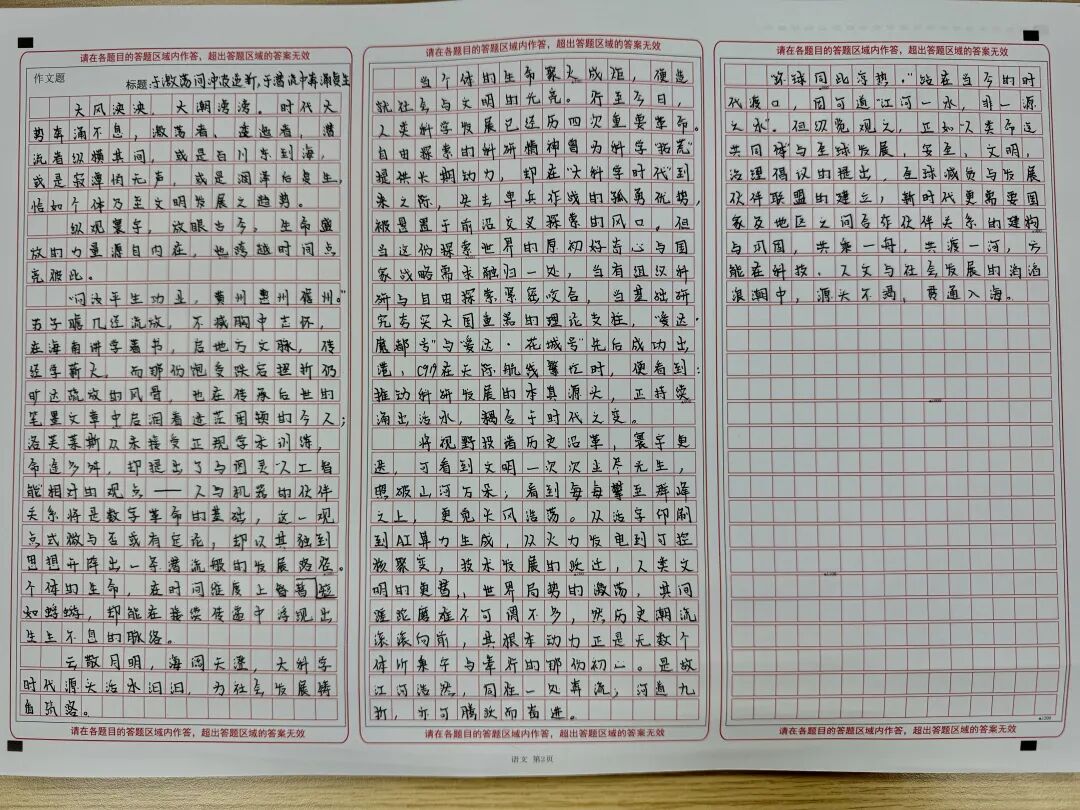 请在各题目的答题区域内作答，超出答题区域的答案无效
作文题
标题：于激荡间冲波逐新，于潜流中奔涌复生
大风泱泱，大潮滂滂。时代大
势奔涌不息，激荡者、逐逝者，潜
流者纵横其间，或是百川东到海，
或是寂潭悄无声，或是润泽后复生，
恰如个体乃至文明发展之趋势。
纵观寰宇，放眼古今，生命盛
放的力量源自内在，也跨越时间点
亮彼此。
“问汝平生功业，黄州惠州儋州。”
苏子瞻几经流放，不减胸中志怀，
在海南讲学著书，启地方文脉，传
经学薪火。而那份饱受跌后挫折仍
旷达疏放的风骨，也在传承后世的
笔墨文章中启润着迷茫困顿的今人；
洛芙莱斯从未接受正规学术训练，
命途多舛，却提出了与图灵“人工智
能”相对的观点——人与机器的伙伴
关系将是数字革命的基础，这一观
点式微与否或有定论，却以其独到
思想开辟出一条潜流般的发展路径。
个体的生命，在时间维度上
如蜉蝣，却能在接续传递中浮现出
生生不息的脉络。
云散月明，海阔天澄，大科学
时代源头活水汩汩，为社会发展铸
自筑路。
请在各题目的答题区域内作答，超出答题区域的答案无效
请在各题目的答题区域内作答，超出答题区域的答案无效
当个体的生命聚火成炬，便造
就社会与文明的光亮。行至今日，
人类科学发展已经历四次重要革命。
自由探索的科研精神曾为科学“拓荒”
提供长期动力，却在“大科学时代”到
来之际，失去单兵作战的孤勇优势，
被置于前沿交叉探索的风口。但
当这份探索世界的原初好奇心与国
家战略需求融归一处，当有组织科
研与自由探索深度咬合，当基础研
究夯实大国重器的理论支柱，“爱达·
魔都号”与“爱达·花城号”先后成功出
港、C919在天际航线繁忙时，便看到：
推动科研发展的本真源头，正持续
涌出活水，耦合于时代之变。
将视野投诸历史沿革，寰宇更
迭，可看到文明一次次尘尽光生，
照破山河万朵，看到每每攀至群峰
之上，更觉天风浩荡。从活字印刷
到AI算力生成，从火力发电到可控
核聚变，技术发展的跃迁，人类文
明的更替，世界局势的激荡，其间
蹉跎磨难不可谓不多，然历史潮流
滚滚向前，其根本动力正是无数个
体所秉守与奉行的那份初心。是故
江河浩然，同在一处奔流；河道九
折，亦可腾跃而奋进。
请在各题目的答题区域内作答，超出答题区域的答案无效
请在各题目的答题区域内作答，超出答题区域的答案无效
“环球同此凉热。”站在当今的时
代渡口，固可道“江河一水，非一源
之水”。但纵览观之，正如“人类命运
共同体”与全球发展，安全，文明，
治理倡议的提出，全球减贫与发展
伙伴联盟的建立，新时代更需要国
家及地区之间合作伙伴关系的建构
与巩固，共乘一舟，共渡一河，方
能在科技、人文与社会发展的滔滔
浪潮中，源头不竭，贯通入海。
请在各题目的答题区域内作答，超出答题区域的答案无效
语文 第2页